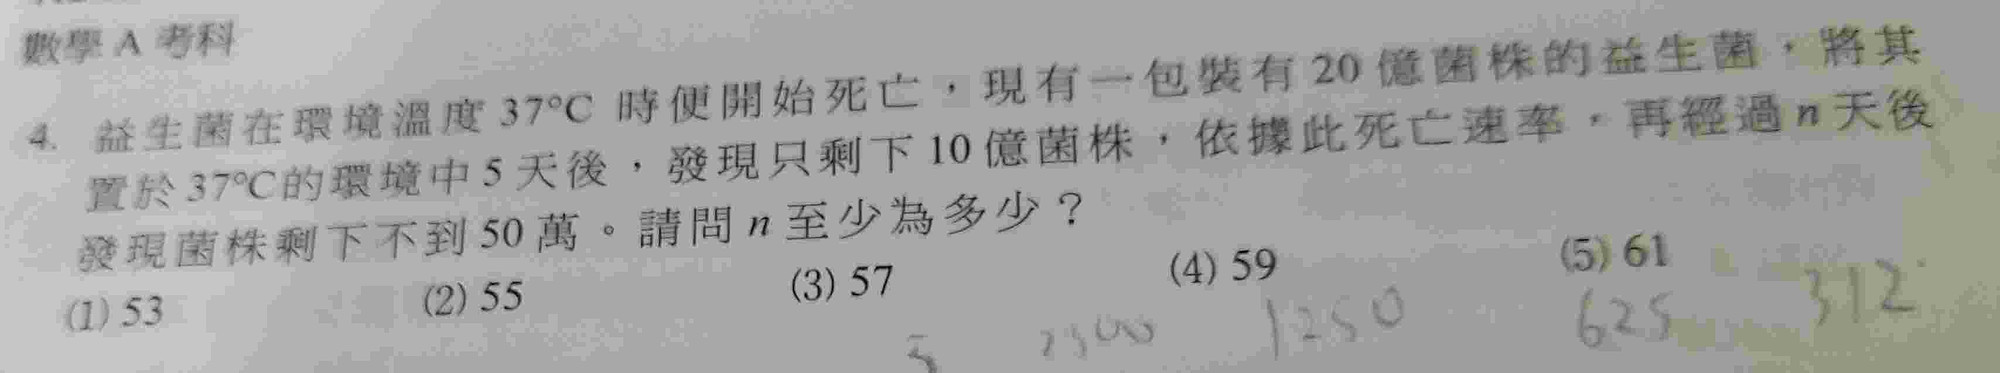 數學 A 考科
4. 益生菌在環境溫度 37°C 時便開始死亡，現有一包裝有 20 億菌株的益生菌，將其
置於 37°C的環境中 5 天後，發現只剩下 10 億菌株，依據此死亡速率，再經過 n 天後
發現菌株剩下不到 50 萬。請問 n 至少為多少？
(1) 53 (2) 55 (3) 57 (4) 59 (5) 61
5 2500 1250 625 312